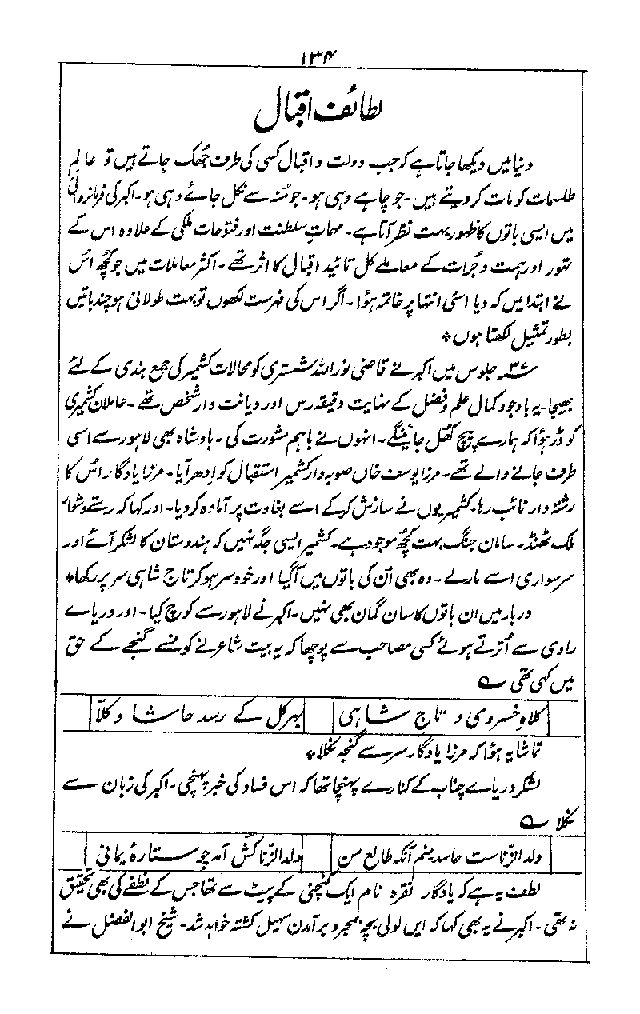 ۱۳۴
لطائف اقبال
دنیا میں دیکھا جاتا ہے کہ جب دولت و اقبال کسی کی طرف جھک جاتے ہیں تو عالم
طلسمات کو مات کر دیتے ہیں - جو چاہے وہی ہو - جو منہ سے نکل جائے وہی ہو - اکبر کی فرمانروائی
میں ایسی باتوں کا ظہور بہت نظر آتا ہے - مہمات سلطنت اور فتوحات ملکی کے علاوہ اس کے
تہور اور ہمت و جرأت کے معاملے کل تائید اقبال کا اثر تھے - اکثر معاملات میں جو کچھ اس
نے ابتدا میں کہ دیا اسی انتہا پر خاتمہ ہوا - اگر اس کی فہرست لکھوں تو بہت طولانی ہو چند باتیں
بطور تمثیل لکھتا ہوں *
۳۷؁ جلوس میں اکبر نے قاضی نوراللہ شستری کو محالات کشمیر کی جمع بندی کے لئے
بھیجا - یہ باوجود کمال علم و فضل کے نہایت دقیقہ رس اور دیانت دار شخص تھے - عاملان کشمیری
کو ڈر ہوا کہ ہمارے پیچ کھل جائینگے - انہوں نے باہم مشورت کی - بادشاہ بھی لاہور سے اسی
طرف جانے والے تھے - مرزا یوسف خاں صوبہ دار کشمیر استقبال کو ادھر آیا - مرزا یادگار اس کا
رشتہ دار نائب رہا - کشمیریوں نے سازش کر کے اسے بغاوت پر آمادہ کر دیا - اور کہا کہ رستے دشوار
ملک ٹھنڈ - سامان جنگ بہت کچھ موجود ہے - کشمیر ایسی جگہ نہیں کہ ہندوستان کا لشکر آئے اور
سرسواری اسے مارلے - وہ بھی ان کی باتوں میں آگیا اور خود سر ہو کر تاج شاہی سر پر رکھا *
دربار میں ان باتوں کا سان گمان بھی نہیں - اکبر نے لاہور سے کوچ کیا - اور دریاے
راوی سے اُترتے ہوئے کسی مصاحب سے پوچھا کہ یہ بیت شاعر نے کونسے گنجے کے حق
میں کہی تھی ؎
کلاہ خسروی و تاج شاہی | بہر کل کے رسد حاشا و کلّا
تماشا یہ ہوا کہ مرزا یادگار سر سے گنجہ نکلا *
لشکر دریاے چناب کے کنارے پہنچا تھا کہ اس فساد کی خبر پہنچی - اکبر کی زبان سے
نکلا ؎
ولدالزناست حاسد منم آنکہ طالع من | ولدالزناکش آمد چو ستارۂ یمانی
لطف یہ ہے کہ یادگار نقرہ نام ایک کنچنی کے پیٹ سے تھا جس کے نطفے کی بھی تحقیق
نہ تھی - اکبر نے یہ بھی کہا کہ ایں لولی بچہ بمجرد برآمدن سہیل کشتہ خواہد شد - شیخ ابوالفضل نے